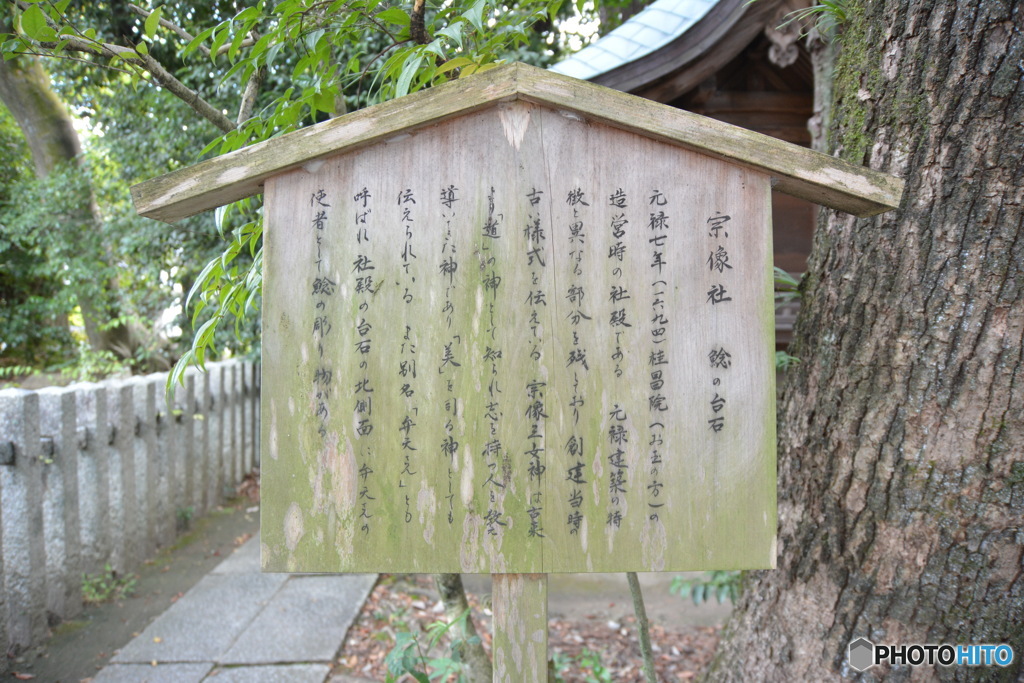 宗像社　鯰の台石
元禄七年（一六九四）桂昌院（お玉の方）の
造営時の社殿である　元禄建築の特
徴と異なる部分を残しており創建当時
古様式を伝えている　宗像三女神は古来
より「道」の神として知られ志を持つ人を教え
導いた神であり「美」を司る神としても
伝えられている　また別名「弁天さん」とも
呼ばれ社殿の台石の北側面に弁天さんの
使者として鯰の彫り物がある
PHOTOHITO